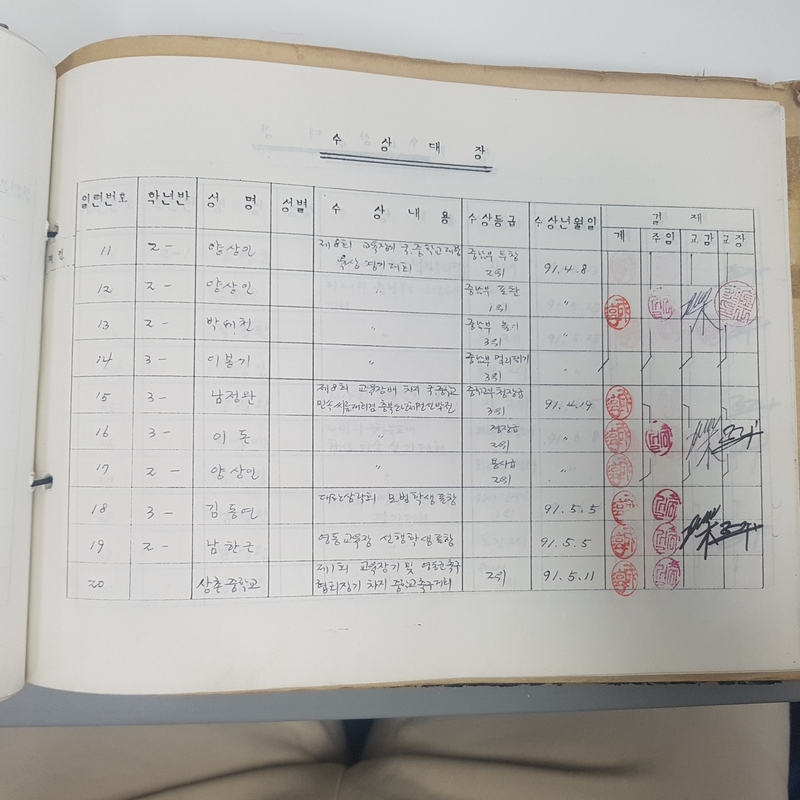 수 상 대 장
일련번호 학년반 성 명 성별 수 상 내 용 수상등급 수상년월일 결 재
계 주임 교감 교장
11 2- 양상인 제8회 교육장기 국.중학교대항 중남부 투창
육상 경기대회 2위 91.4.8
12 2- 양상인 〃 중남부 포환 〃
1위
13 2- 박 〃 중남부 높이 〃
3위
14 3- 이봉기 〃 중남부 멀리뛰기 〃
3위
15 3- 남정완 제8회 교육장배 차지 국.중학교 중학교부 청장급
민속씨름대회겸 충북소년체전선발전 3위 91.4.19
16 3- 이 돈 〃 청장급 〃
2위
17 2- 양상인 〃 용사급 〃
2위
18 3- 김동연 모범학생표창 91.5.5
19 2- 남한근 영동교육장 선행학생표창 91.5.5
20 상촌중학교 제1회 교육장기 및 영동군축구 2위 91.5.11
협회장기 차지 중학교축구대회